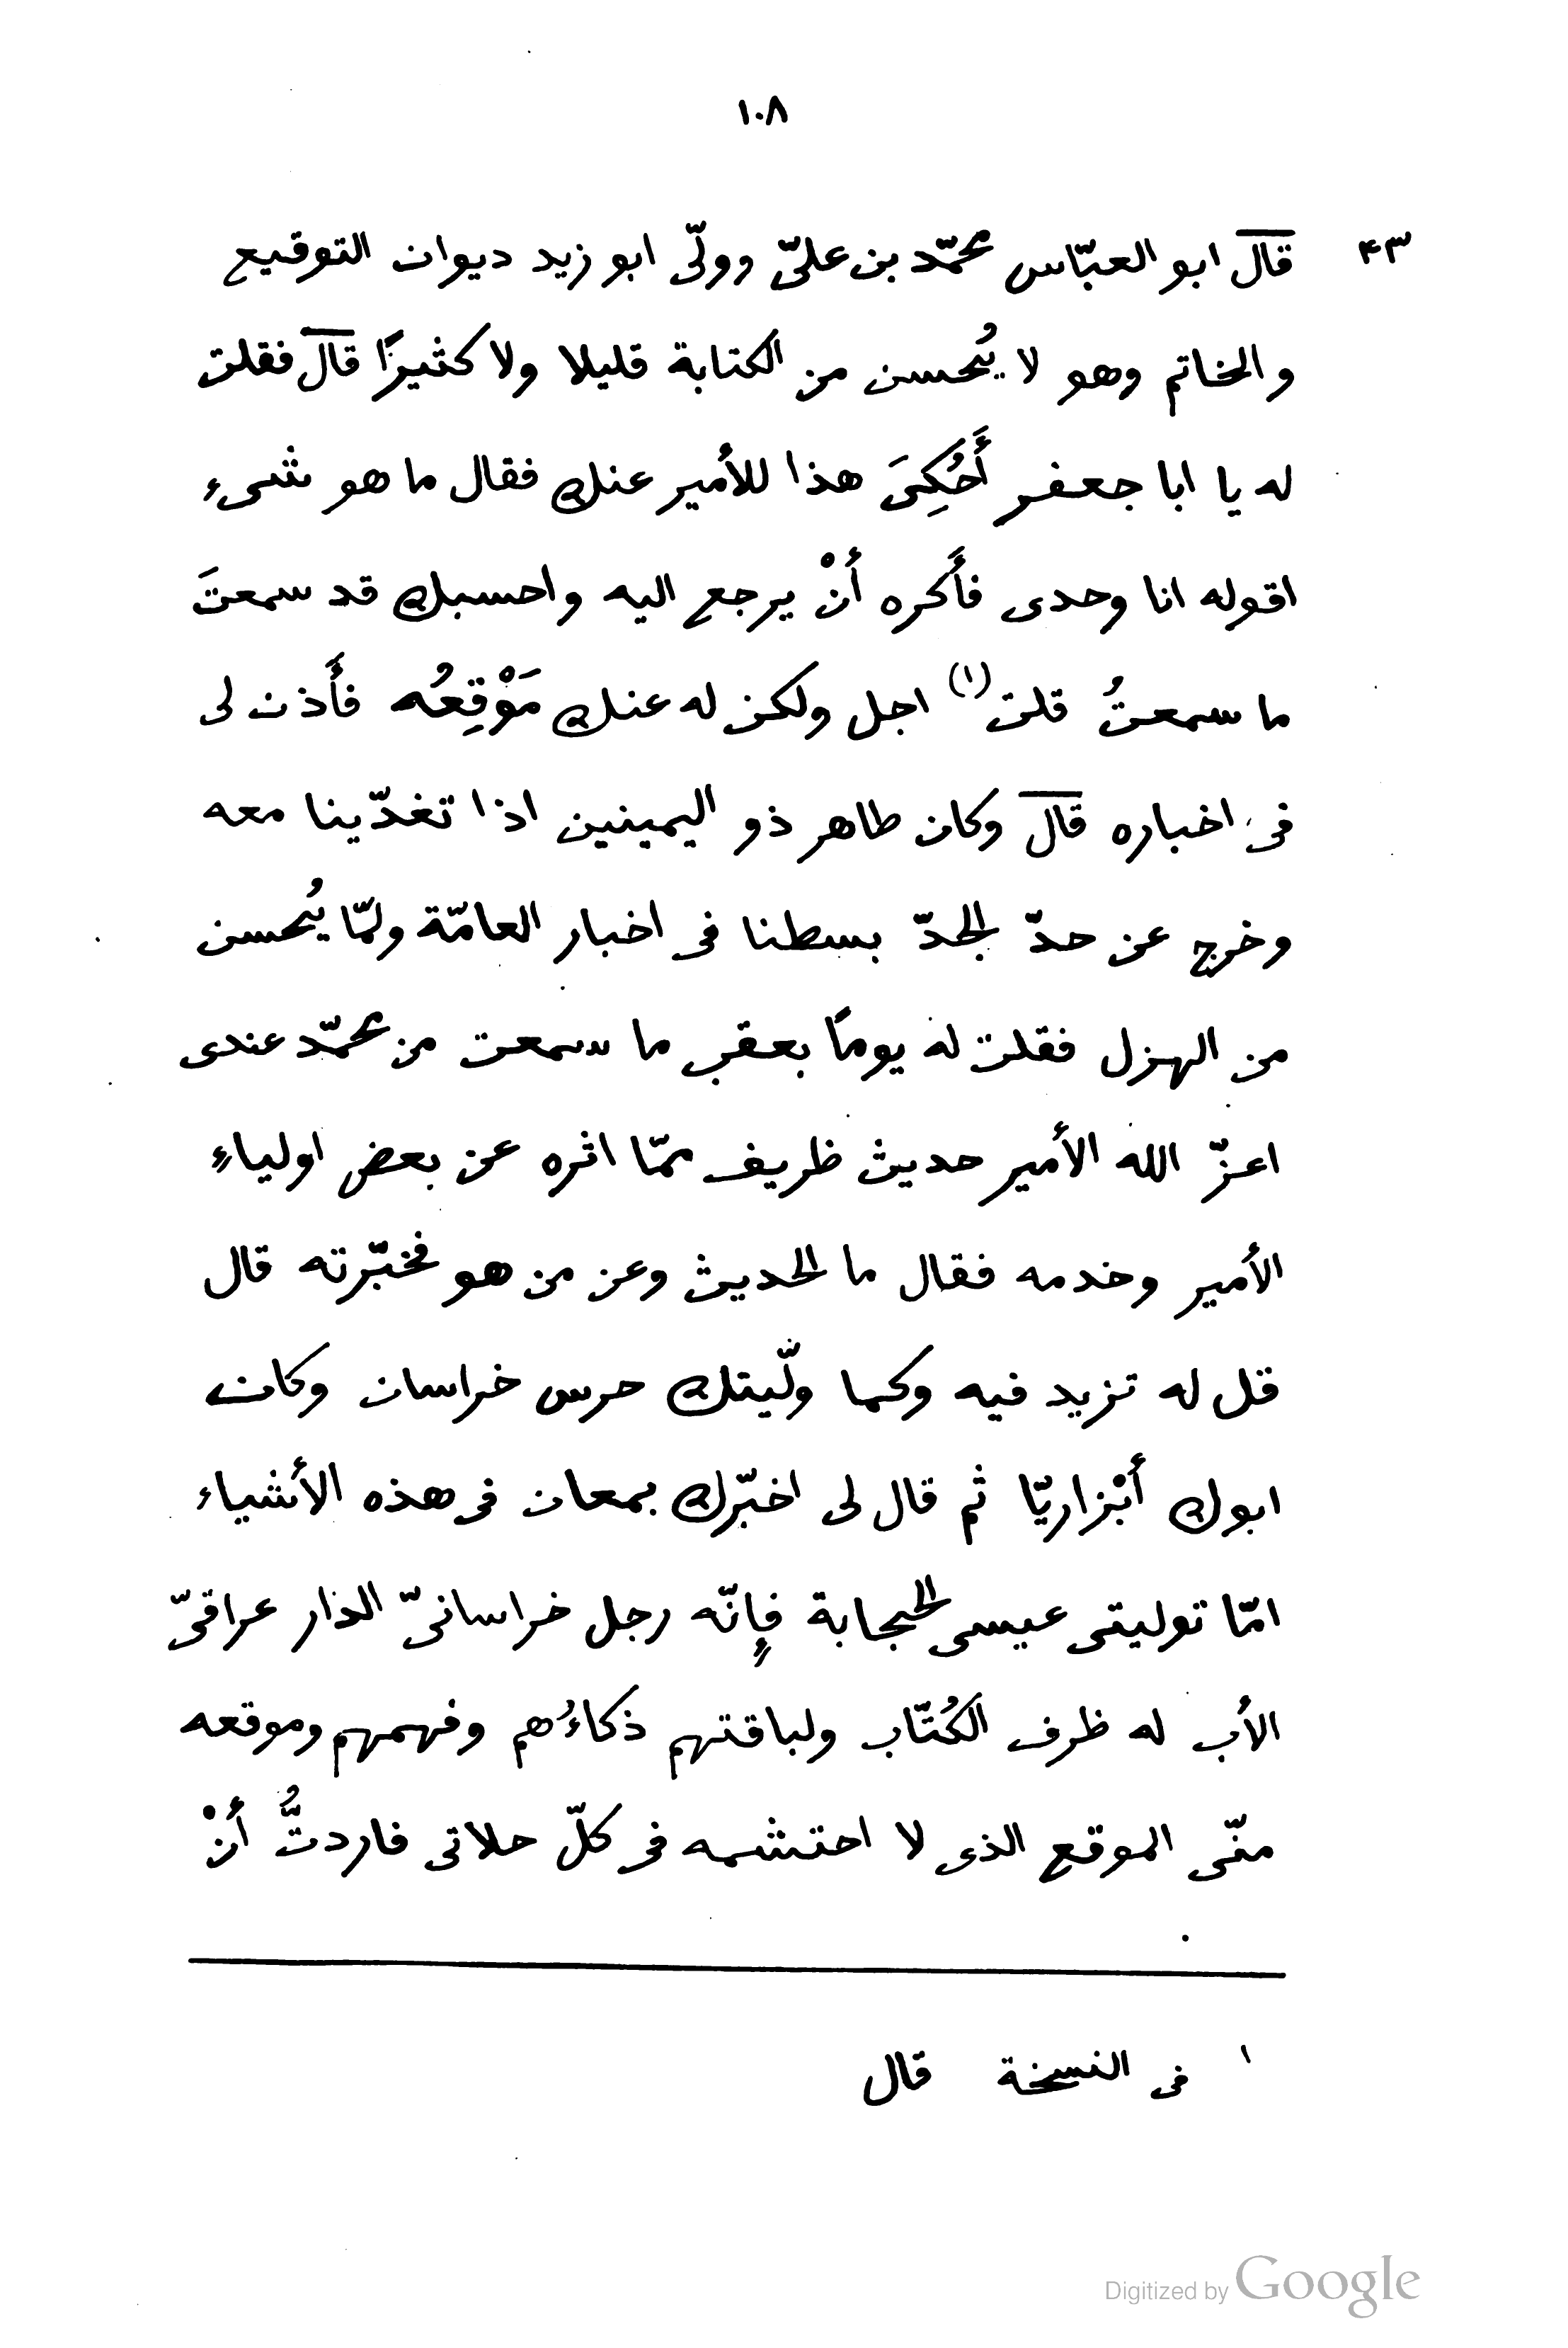 ١٠٨
٤٣
قال ابو العبّاس محمّد بن علىّ وولّى ابو زيد ديوان التوقيع
والخاتم وهو لا يُحسن من الكتابة قليلا ولا كثيرًا قال فقلت
له يا ابا جعفر أَحْكِىَ هذا للأمير عنك فقال ما هو شىء
اقوله انا وحدى فأَكره أنْ يرجع اليه واحسبك قد سمعتَ
ما سمعتُ قلت (١) اجل ولكن له عنك مَوْقِعُه فأَذن لى
فى اخباره قال وكان طاهر ذو اليمينين اذا تغدّينا معه
وخرج عن حدّ الجدّ بسطنا فى اخبار العامّة ولمّا يُحسن
من الهزل فقلت له يومًا بعقب ما سمعت من محمّد عندى
اعزّ الله الأمير حديث ظريف ممّا اثره عن بعض اولياءِ
الأمير وخدمه فقال ما الحديث وعن من هو فخبّرته قال
قل له تزيد فيه وكما ولّيتك حرس خراسان وكان
ابوك أبْزاريّا ثم قال لى اخبّرك بمعان فى هذه الأشياء
امّا توليتى عيسى الحجابة فإنّه رجل خراسانىّ الدار عراقىّ
الأب له ظرف الكُتّاب ولباقتهم ذكاءُهم وفهمهم وموقعه
منّى الموقع الذى لا احتشمه فى كلّ حلاتى فاردتُّ أنْ
١ فى النسخة قال
Digitized by Google